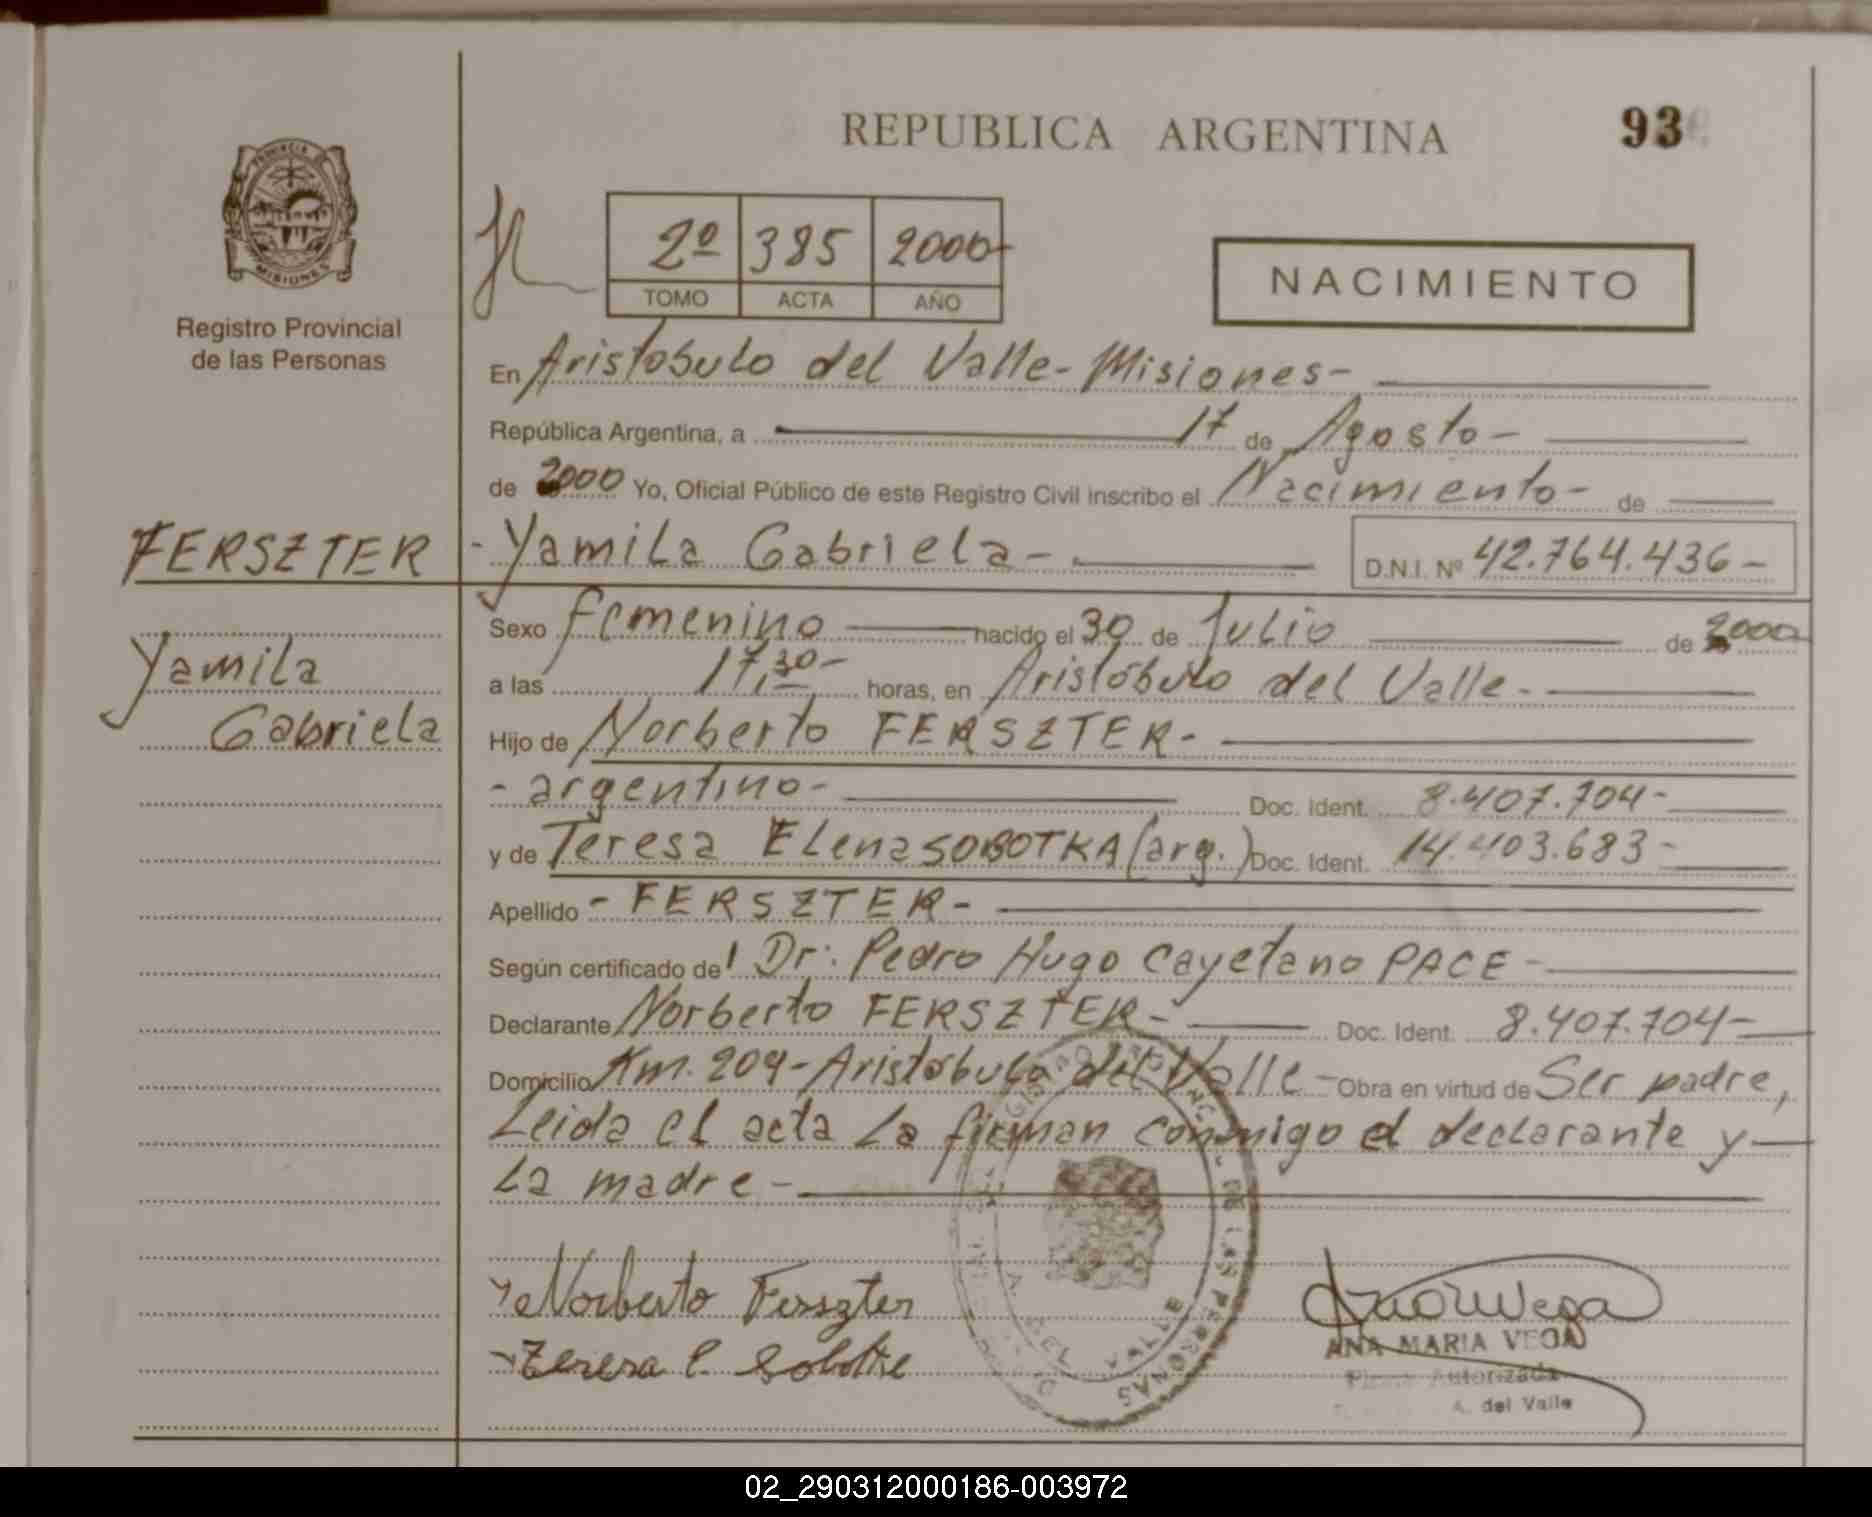 REPUBLICA ARGENTINA
93
PROVINCIA DE
MISIONES
Registro Provincial
de las Personas
2º 385 2000
TOMO ACTA AÑO
NACIMIENTO
En Aristobulo del Valle - Misiones -
República Argentina, a 17 de Agosto -
de 2000 Yo, Oficial Público de este Registro Civil inscribo el Nacimiento - de
FERSZTER - Yamila Gabriela - D.N.I. Nº 42.764.436 -
Yamila
Gabriela
Sexo femenino nacido el 30 de Julio de 2000
a las 17,30 - horas, en Aristóbulo del Valle -
Hijo de Norberto FERSZTER -
- argentino - Doc. Ident. 8.407.704 -
y de Teresa Elena SOBOTKA (arg.) Doc. Ident. 14.403.683 -
Apellido - FERSZTER -
Según certificado de l Dr: Pedro Hugo Cayetano PACE -
Declarante Norberto FERSZTER - Doc. Ident. 8.407.704 -
Domicilio Km. 209 - Aristóbulo del Valle - Obra en virtud de Ser padre,
Leida el acta la firman conmigo el declarante y
la madre -
Norberto Ferszter
Teresa E. Sobotka
ANA MARIA VEGA
Autorizada
A. del Valle
DE LAS PERSONAS
02_290312000186-003972